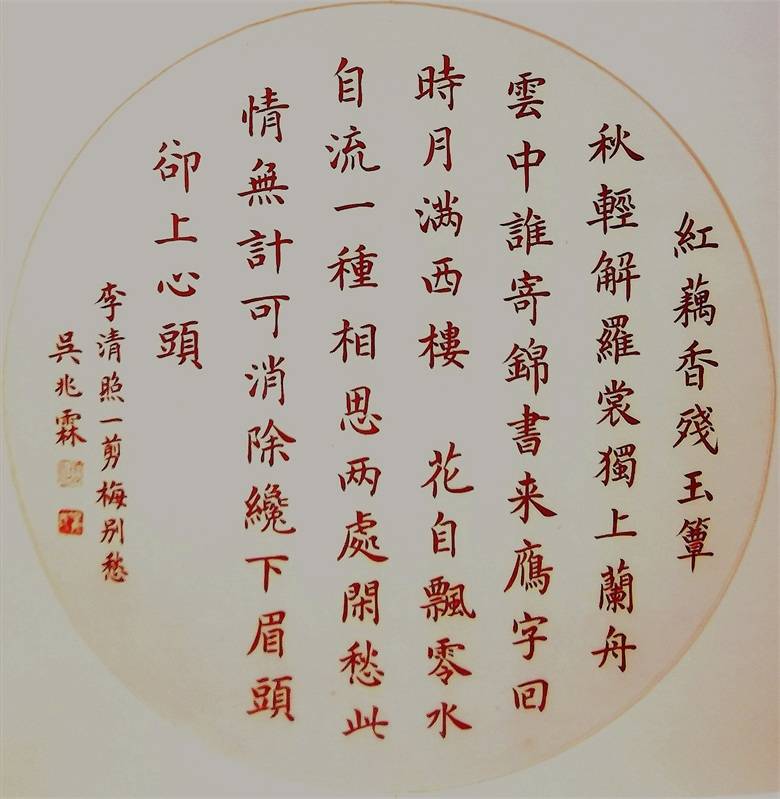 紅藕香殘玉簟
秋輕解羅裳獨上蘭舟
雲中誰寄錦書来鴈字回
時月满西樓　花自飄零水
自流一種相思两處閑愁此
情無計可消除纔下眉頭
卻上心頭
李清照一剪梅别愁
吳兆霖